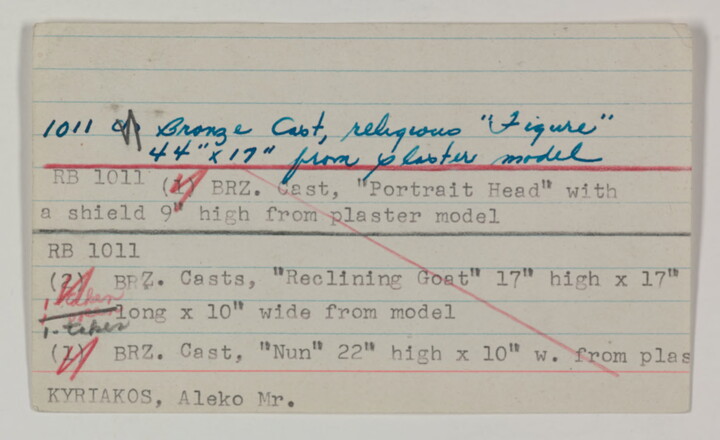 1011 Bronze Cast, religious "Figure"
44" x 17" from plaster model
RB 1011 (1) BRZ. Cast, "Portrait Head" with
a shield 9" high from plaster model
RB 1011
(2) BRZ. Casts, "Reclining Goat" 17" high x 17"
1 taken
long x 10" wide from model
1 - taken
(1) BRZ. Cast, "Nun" 22" high x 10" w. from plas
KYRIAKOS, Aleko Mr.